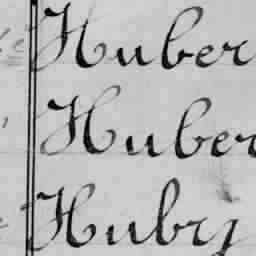 Huber
Huber
Huby